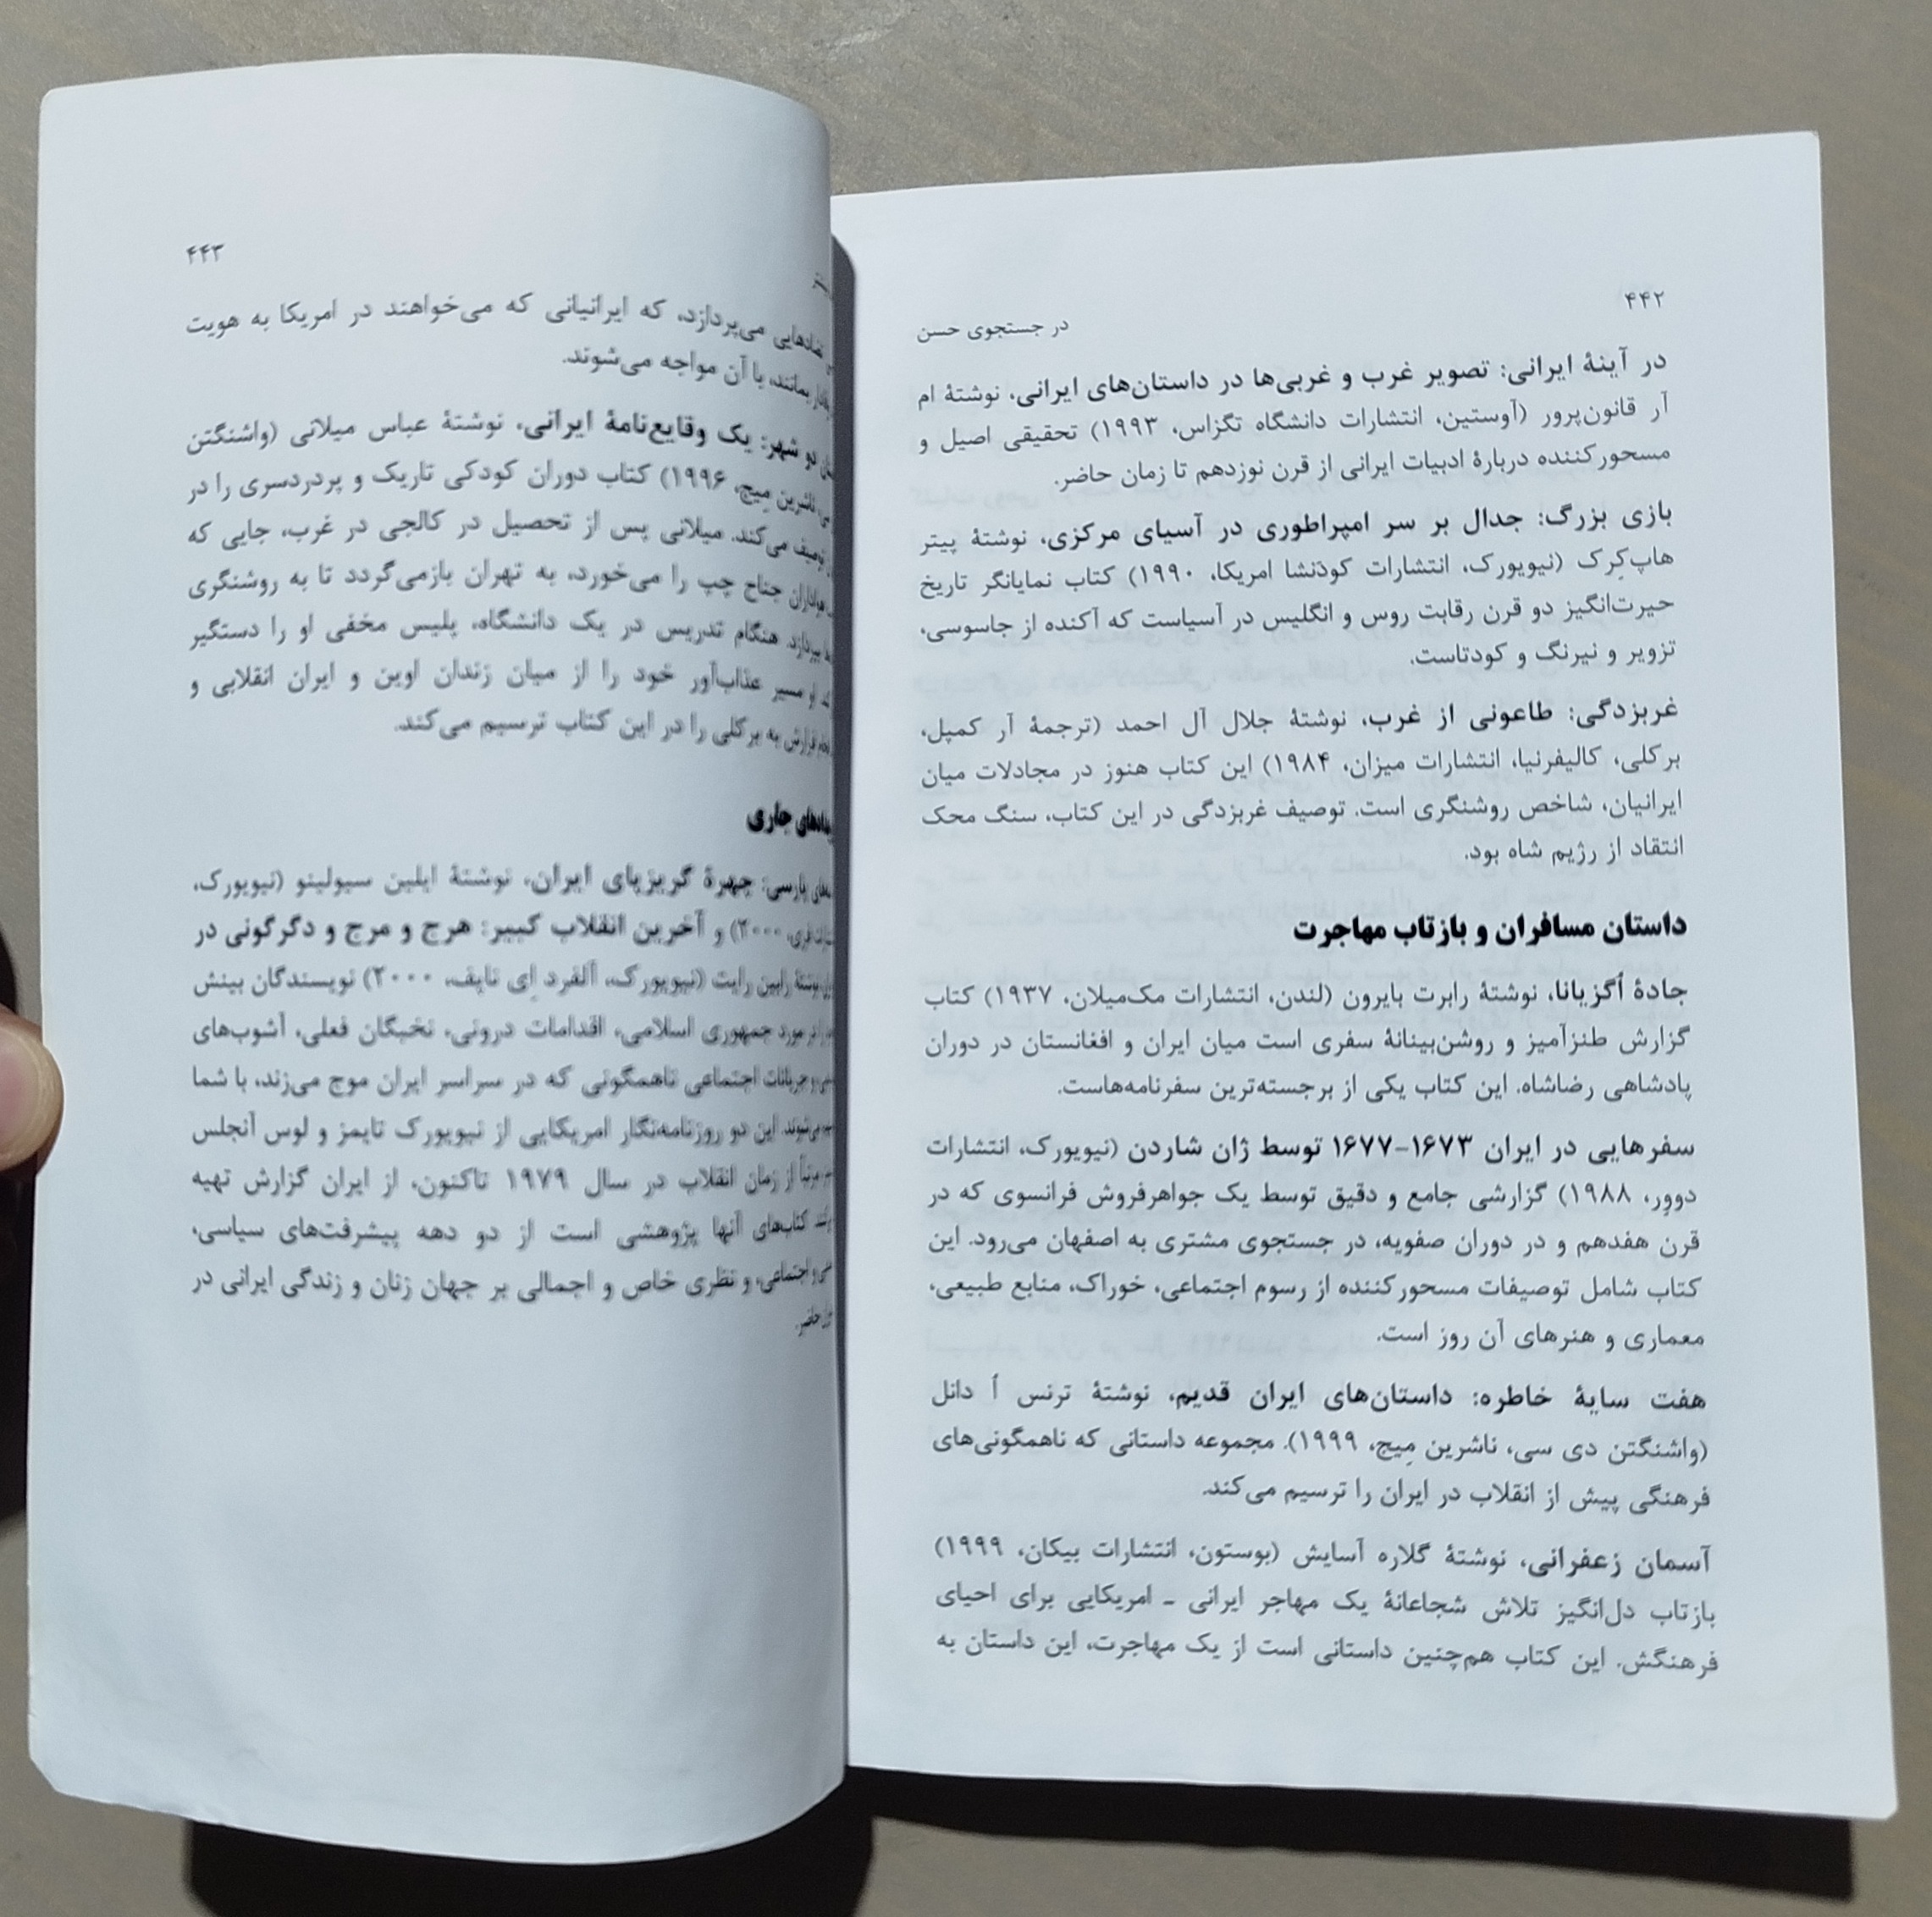 ۴۴۲
در جستجوی حسن
در آینهٔ ایرانی: تصویر غرب و غربی‌ها در داستان‌های ایرانی، نوشتهٔ ام
آر قانون‌پرور (آوستین، انتشارات دانشگاه تگزاس، ۱۹۹۳) تحقیقی اصیل و
مسحورکننده دربارهٔ ادبیات ایرانی از قرن نوزدهم تا زمان حاضر.
بازی بزرگ: جدال بر سر امپراطوری در آسیای مرکزی، نوشتهٔ پیتر
هاپ‌کِرک (نیویورک، انتشارات کودَنشا امریکا، ۱۹۹۰) کتاب نمایانگر تاریخ
حیرت‌انگیز دو قرن رقابت روس و انگلیس در آسیاست که آکنده از جاسوسی،
تزویر و نیرنگ و کودتاست.
غربزدگی: طاعونی از غرب، نوشتهٔ جلال آل احمد (ترجمهٔ آر کمپل،
برکلی، کالیفرنیا، انتشارات میزان، ۱۹۸۴) این کتاب هنوز در مجادلات میان
ایرانیان، شاخص روشنگری است. توصیف غربزدگی در این کتاب، سنگ محک
انتقاد از رژیم شاه بود.
داستان مسافران و بازتاب مهاجرت
جادهٔ اُگزیانا، نوشتهٔ رابرت بایرون (لندن، انتشارات مک‌میلان، ۱۹۳۷) کتاب
گزارش طنزآمیز و روشن‌بینانهٔ سفری است میان ایران و افغانستان در دوران
پادشاهی رضاشاه. این کتاب یکی از برجسته‌ترین سفرنامه‌هاست.
سفرهایی در ایران ۱۶۷۳-۱۶۷۷ توسط ژان شاردن (نیویورک، انتشارات
دووِر، ۱۹۸۸) گزارشی جامع و دقیق توسط یک جواهرفروش فرانسوی که در
قرن هفدهم و در دوران صفویه، در جستجوی مشتری به اصفهان می‌رود. این
کتاب شامل توصیفات مسحورکننده از رسوم اجتماعی، خوراک، منابع طبیعی،
معماری و هنرهای آن روز است.
هفت سایهٔ خاطره: داستان‌های ایران قدیم، نوشتهٔ ترنس اُ دانل
(واشنگتن دی سی، ناشرین مِیج، ۱۹۹۹). مجموعه داستانی که ناهمگونی‌های
فرهنگی پیش از انقلاب در ایران را ترسیم می‌کند.
آسمان زعفرانی، نوشتهٔ گلاره آسایش (بوستون، انتشارات بیکان، ۱۹۹۹)
بازتاب دل‌انگیز تلاش شجاعانهٔ یک مهاجر ایرانی ـ امریکایی برای احیای
فرهنگش. این کتاب هم‌چنین داستانی است از یک مهاجرت، این داستان به
۴۴۳
تضادهایی می‌پردازد، که ایرانیانی که می‌خواهند در امریکا به هویت
بمانند، با آن مواجه می‌شوند.
دو شهر: یک وقایع‌نامهٔ ایرانی، نوشتهٔ عباس میلانی (واشنگتن
ناشرین مِیج، ۱۹۹۶) کتاب دوران کودکی تاریک و پردردسری را در
توصیف می‌کند. میلانی پس از تحصیل در کالجی در غرب، جایی که
هواداران جناح چپ را می‌خورد، به تهران بازمی‌گردد تا به روشنگری
بپردازد. هنگام تدریس در یک دانشگاه، پلیس مخفی او را دستگیر
او مسیر عذاب‌آور خود را از میان زندان اوین و ایران انقلابی و
فرارش به برکلی را در این کتاب ترسیم می‌کند.
جاری
پارسی: چهرهٔ گریزپای ایران، نوشتهٔ ایلین سیولینو (نیویورک،
۲۰۰۰) و آخرین انقلاب کبیر: هرج و مرج و دگرگونی در
نوشتهٔ رابین رایت (نیویورک، آلفرد اِی ناپف، ۲۰۰۰) نویسندگان بینش
در مورد جمهوری اسلامی، اقدامات درونی، نخبگان فعلی، آشوب‌های
و جریانات اجتماعی ناهمگونی که در سراسر ایران موج می‌زند، با شما
می‌شوند. این دو روزنامه‌نگار امریکایی از نیویورک تایمز و لوس آنجلس
مرتباً از زمان انقلاب در سال ۱۹۷۹ تاکنون، از ایران گزارش تهیه
کتاب‌های آنها پژوهشی است از دو دهه پیشرفت‌های سیاسی،
و اجتماعی، و نظری خاص و اجمالی بر جهان زنان و زندگی ایرانی در
حاضر.